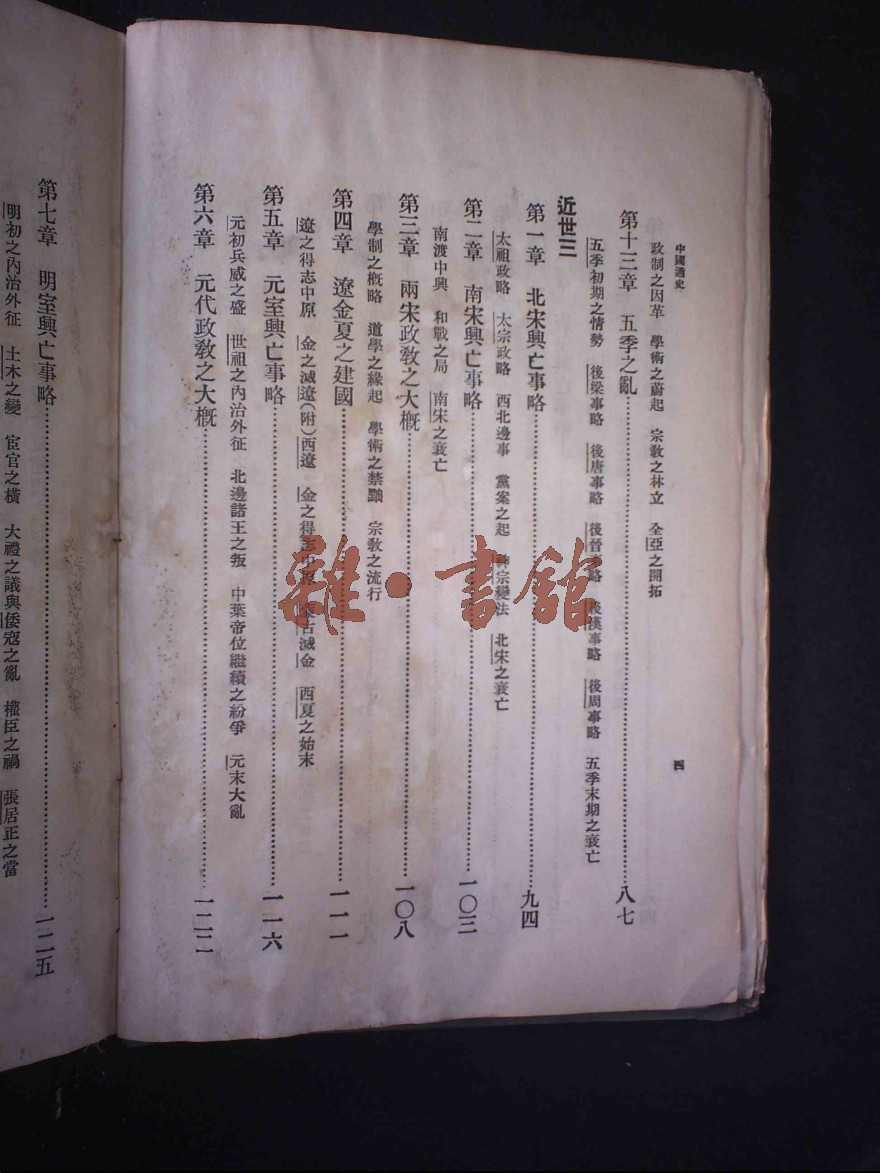 中國通史
四
政制之因革　學術之蔚起　宗教之林立　全亞之開拓
第十三章　五季之亂……八七
五季初期之情勢　後梁事略　後唐事略　後晉事略　後漢事略　後周事略　五季末期之衰亡
近世三
第一章　北宋興亡事略……九四
太祖政略　太宗政略　西北邊事　黨案之起　神宗變法　北宋之衰亡
第二章　南宋興亡事略……一〇三
南渡中興　和戰之局　南宋之衰亡
第三章　兩宋政教之大概……一〇八
學制之概略　道學之緣起　學術之禁黜　宗教之流行
第四章　遼金夏之建國……一一一
遼之得志中原　金之滅遼(附)西遼　金之得志中原　蒙古滅金　西夏之始末
第五章　元室興亡事略……一一六
元初兵威之盛　世祖之內治外征　北邊諸王之叛　中葉帝位繼續之紛爭　元末大亂
第六章　元代政教之大概……一二二
第七章　明室興亡事略……一二五
明初之內治外征　土木之變　宦官之橫　大禮之議與倭寇之亂　權臣之禍　張居正之當
雜·書館